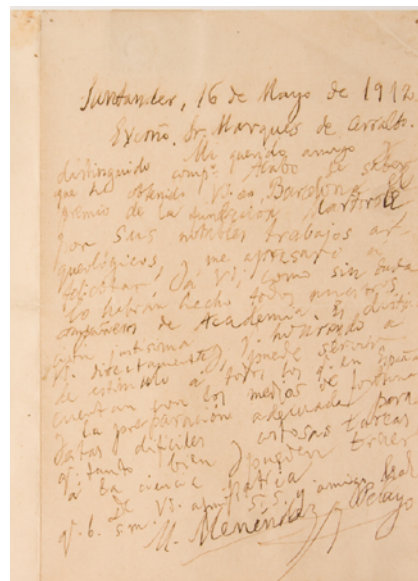 Santander, 16 de Mayo de 1912
Excmo. Sr. Marques de Cerralbo
Mi querido amigo y
distinguido compº: Acabo de saber
que ha obtenido Vd. en Barcelona el
premio de la fundación Martorell
por sus notables trabajos ar-
queológicos, y me apresuro á
felicitar á Vd., como sin duda
lo habrán hecho todos nuestros
compañeros de Academia. Es distin-
ción justísima y honrando a
Vd. directamente, puede servir
de estímulo a todos los q. en España
cuentan con los medios de fortuna
y la preparación adecuada para
estas difíciles y costosas tareas
q. tanto bien pueden traer
á la ciencia y
De Vd. afmo. s.s. y amigo
q. b. s. m.
M. Menéndez y Pelayo